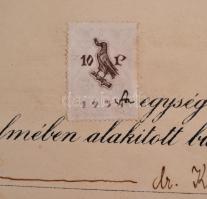 10 P
egység
lmében alakított b
dr. K